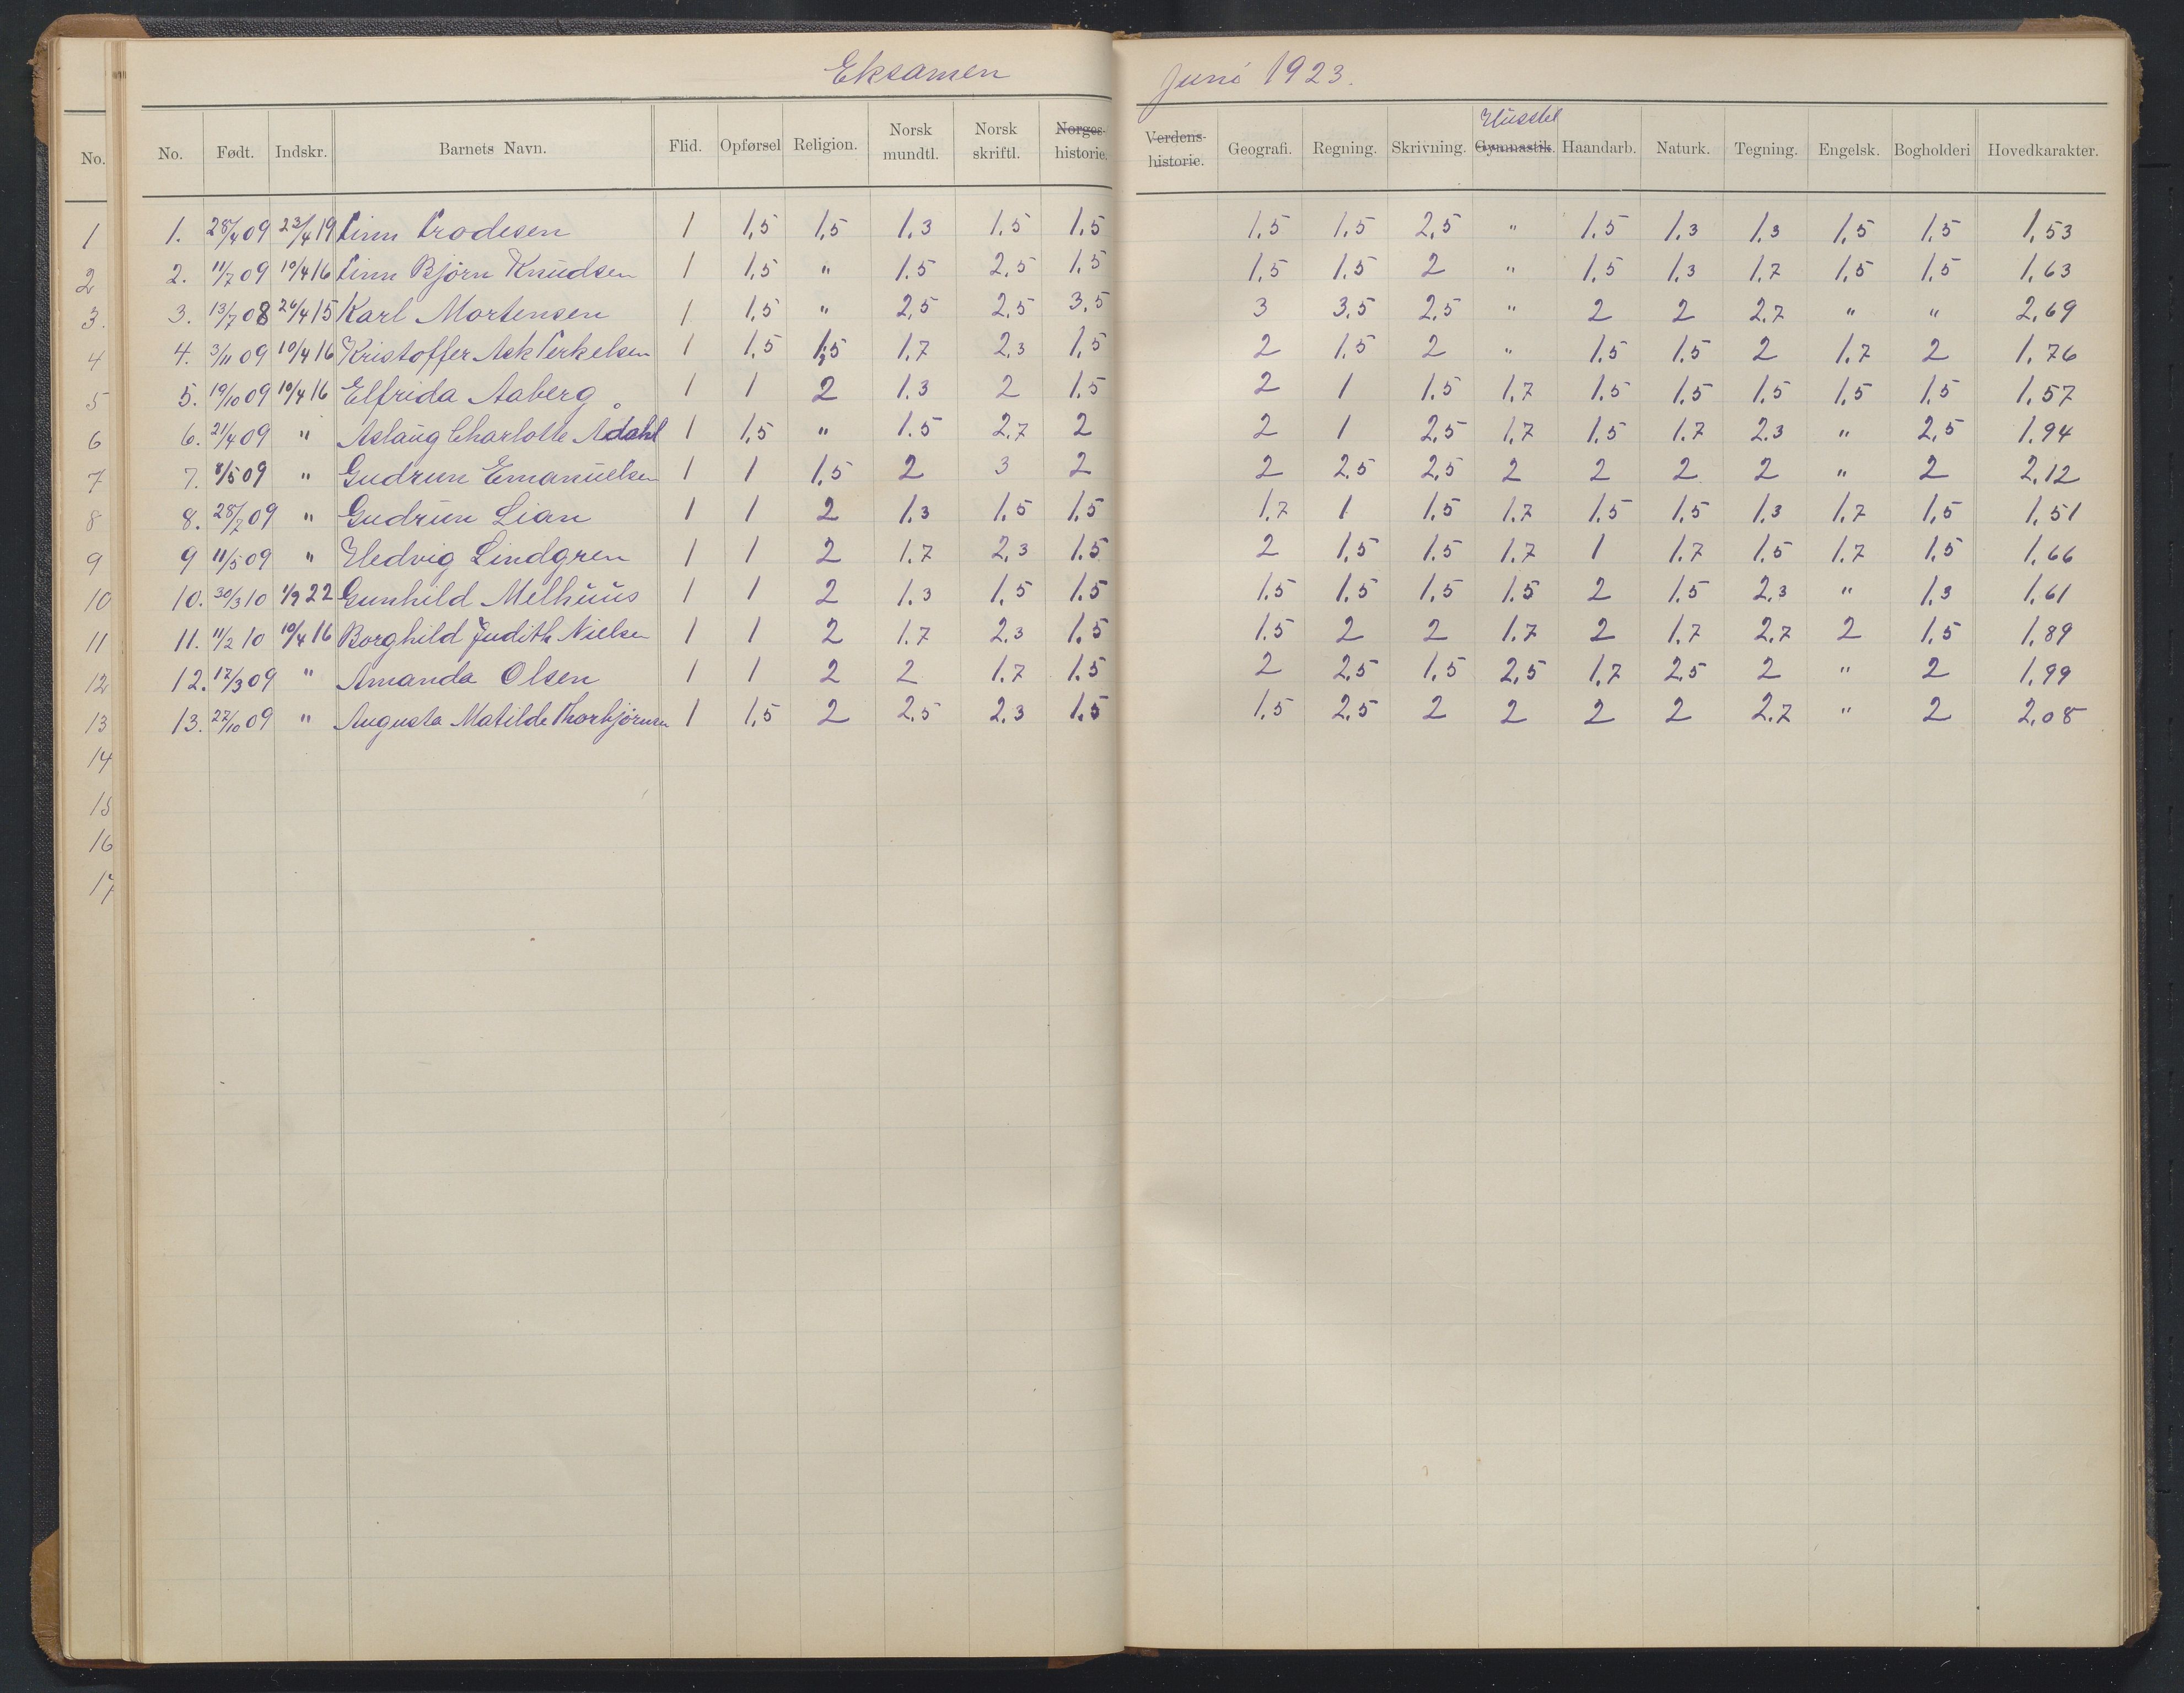 Eksamen Juni 1923.
Husstel
No. No. Født. Indskr. Barnets Navn. Flid. Opførsel Religion. Norsk mundtl. Norsk skriftl. Norges- historie. Verdens- historie. Geografi. Regning. Skrivning. Gymnastik. Haandarb. Naturk. Tegning. Engelsk. Bogholderi Hovedkarakter.
1 1. 28/4 09 23/4 19 Finn Frodesen 1 1,5 1,5 1.3 1.5 1.5 1,5 1,5 2,5 " 1.5 1.3 1.3 1,5 1,5 1,53
2 2. 11/7 09 10/4 16 Finn Bjørn Knudsen 1 1,5 " 1.5 2,5 1,5 1,5 1.5 2 " 1,5 1,3 1.7 1,5 1,5 1,63
3. 3. 13/7 08 26/4 15 Karl Mortensen 1 1,5 " 2,5 2,5 3,5 3 3,5 2,5 " 2 2 2,7 " " 2,69
4 4. 3/11 09 10/4 16 Kristoffer Ask Terkelsen 1 1,5 1,5 1,7 2,3 1,5 2 1,5 2 " 1.5 1.5 2 1,7 2 1,76
5 5. 19/10 09 10/4 16 Elfrida Aaberg 1 1 2 1.3 2 1.5 2 1 1,5 1,7 1,5 1,5 1,5 1,5 1,5 1,57
6 6. 21/4 09 " Aslaug Charlotte Ådahl 1 1,5 " 1.5 2.7 2 2 1 2,5 1,7 1.5 1.7 2.3 " 2,5 1,94
7 7. 8/5 09 " Gudrun Emanuelsen 1 1 1,5 2 3 2 2 2,5 2,5 2 2 2 2 " 2 2,12
8 8. 28/7 09 " Gudrun Lian 1 1 2 1.3 1,5 1,5 1,7 1 1,5 1,7 1.5 1,5 1.3 1,7 1,5 1,51
9 9 11/5 09 " Hedvig Lindgren 1 1 2 1.7 2,3 1.5 2 1,5 1.5 1.7 1 1.7 1.5 1,7 1,5 1,66
10 10. 30/3 10 1/9 22 Gunhild Melhuus 1 1 2 1.3 1,5 1.5 1.5 1.5 1,5 1.5 2 1.5 2,3 " 1,3 1,61
11 11. 11/2 10 10/4 16 Borghild Judith Nielsen 1 1 2 1.7 2.3 1,5 1.5 2 2 1.7 2 1,7 2,7 2 1,5 1,89
12 12. 12/3 09 " Amanda Olsen 1 1 2 2 1.7 1.5 2 2,5 1,5 2,5 1,7 2,5 2 " 2 1,99
13 13. 22/10 09 " Augusta Matilde Thorbjørnsen 1 1,5 2 2,5 2,3 1,5 1,5 2,5 2 2 2 2 2.7 " 2 2,08
14
15
16
17